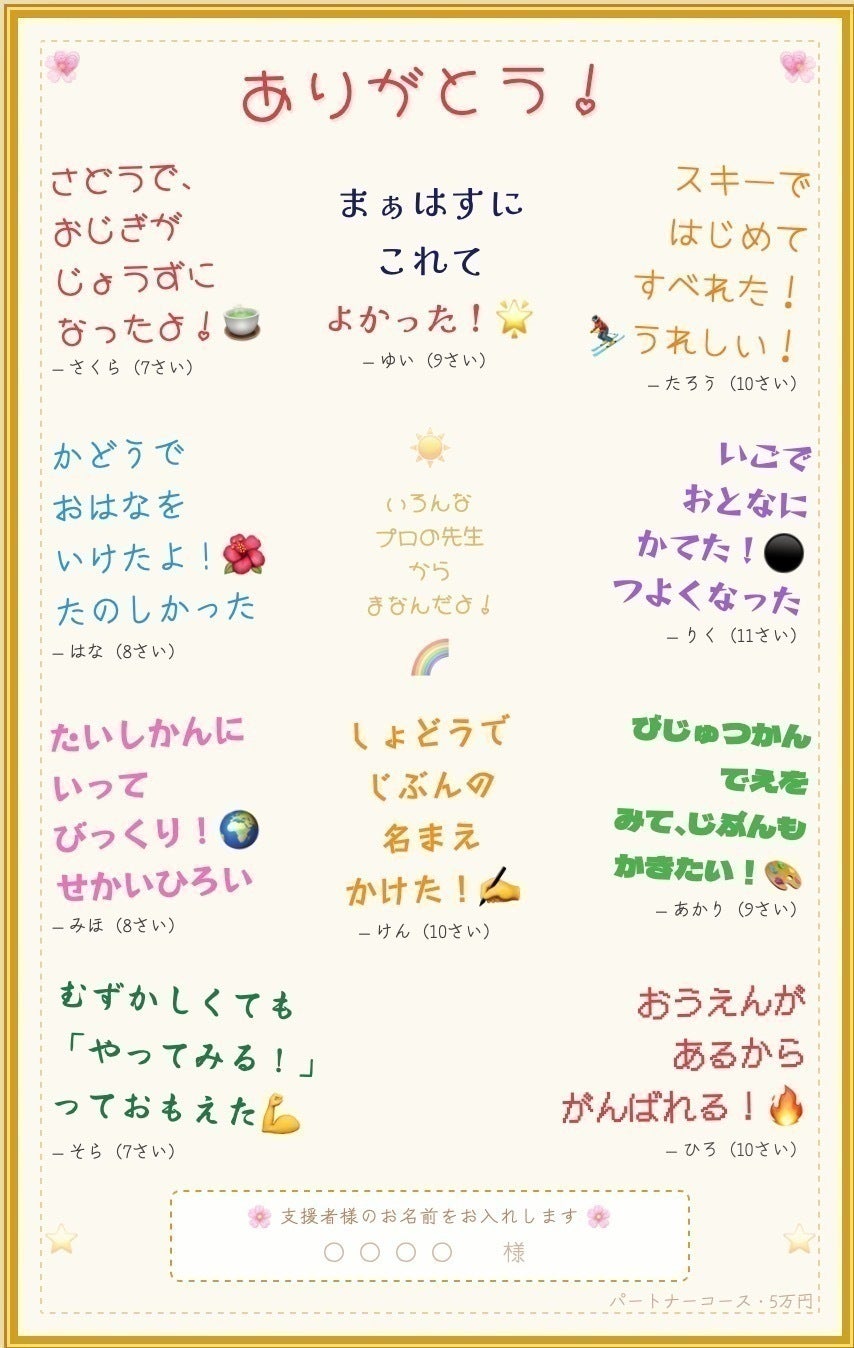 ありがとう！
さどうで、
おじぎが
じょうずに
なったよ！🍵
— さくら（7さい）
まぁはすに
これて
よかった！🌟
— ゆい（9さい）
スキーで
はじめて
すべれた！
⛷️うれしい！
— たろう（10さい）
かどうで
おはなを
いけたよ！🌺
たのしかった
— はな（8さい）
☀️
いろんな
プロの先生
から
まなんだよ！
🌈
いごで
おとなに
かてた！⚫
つよくなった
— りく（11さい）
たいしかんに
いって
びっくり！🌍
せかいひろい
— みほ（8さい）
しょどうで
じぶんの
名まえ
かけた！✍️
— けん（10さい）
びじゅつかん
でえを
みて、じぶんも
かきたい！🎨
— あかり（9さい）
むずかしくても
「やってみる！」
っておもえた💪
— そら（7さい）
おうえんが
あるから
がんばれる！🔥
— ひろ（10さい）
🌸 支援者様のお名前をお入れします 🌸
〇〇〇〇　様
パートナーコース・5万円